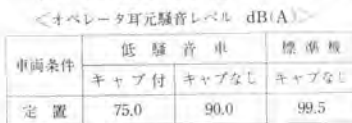 <オペレータ耳元騒音レベル dB(A)>
車両条件 低騒音車 標準機
キャブ付 キャブなし キャブなし
定置 75.0 90.0 99.5